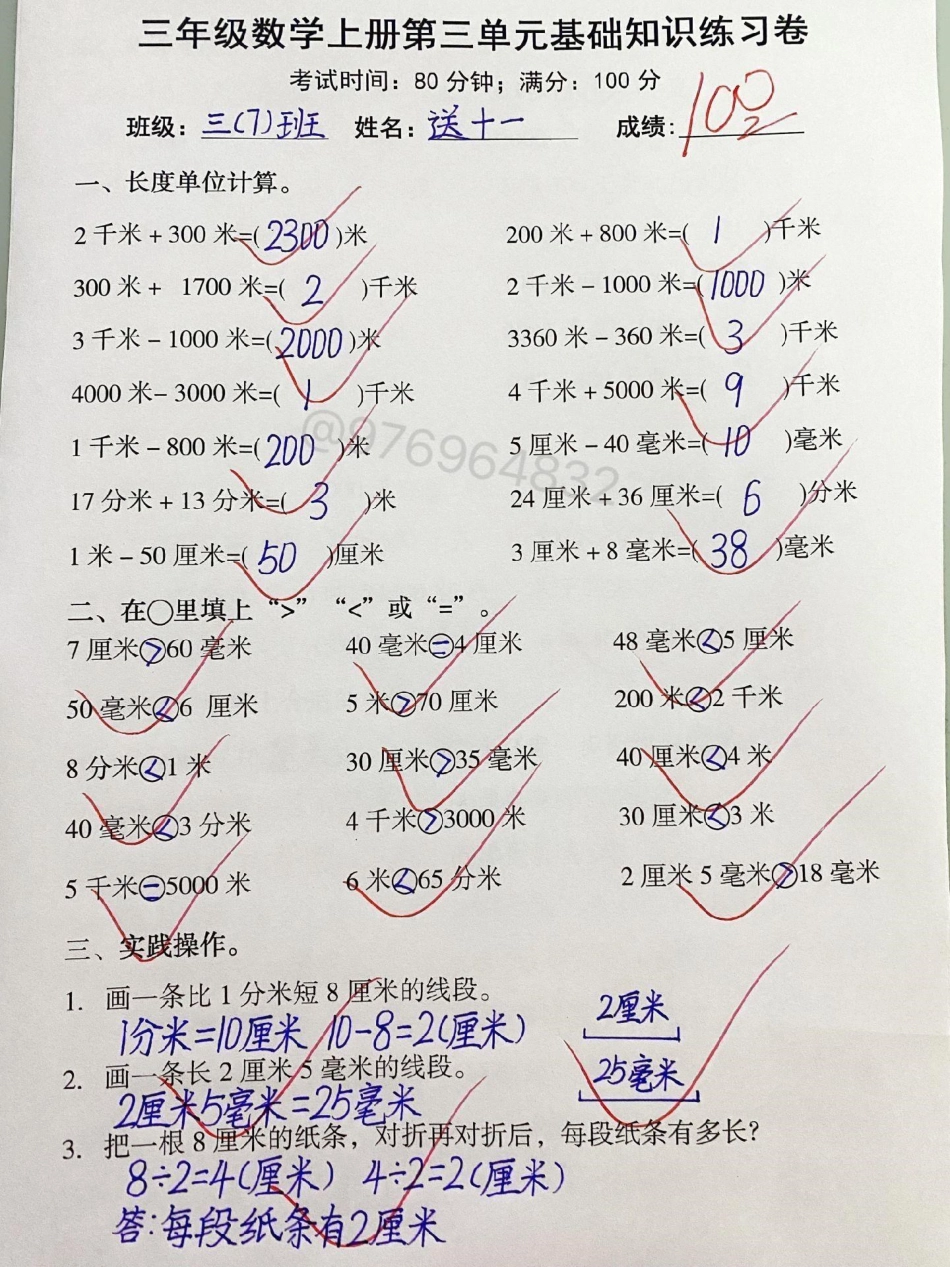 三年级数学上册第三单元基础知识练习卷
考试时间：80 分钟；满分：100 分
班级：三(7)班 姓名：送十一 成绩：100
一、长度单位计算。
2 千米 + 300 米=( 2300 )米 200 米 + 800 米=( 1 )千米
300 米 + 1700 米=( 2 )千米 2 千米 − 1000 米=( 1000 )米
3 千米 − 1000 米=( 2000 )米 3360 米 − 360 米=( 3 )千米
4000 米− 3000 米=( 1 )千米 4 千米 + 5000 米=( 9 )千米
1 千米 − 800 米=( 200 )米 5 厘米 − 40 毫米=( 10 )毫米
@976964832
17 分米 + 13 分米=( 3 )米 24 厘米 + 36 厘米=( 6 )分米
1 米 − 50 厘米=( 50 )厘米 3 厘米 + 8 毫米=( 38 )毫米
二、在○里填上 “>” “<” 或 “=” 。
7 厘米>60 毫米 40 毫米=4 厘米 48 毫米<5 厘米
50 毫米<6 厘米 5 米>70 厘米 200 米<2 千米
8 分米<1 米 30 厘米>35 毫米 40 厘米<4 米
40 毫米<3 分米 4 千米>3000 米 30 厘米<3 米
5 千米=5000 米 6 米<65 分米 2 厘米 5 毫米>18 毫米
三、实践操作。
1. 画一条比 1 分米短 8 厘米的线段。
1分米=10厘米 10−8=2(厘米) 2厘米
2. 画一条长 2 厘米 5 毫米的线段。 25毫米
2厘米5毫米=25毫米
3. 把一根 8 厘米的纸条，对折再对折后，每段纸条有多长？
8÷2=4(厘米) 4÷2=2(厘米)
答：每段纸条有2厘米